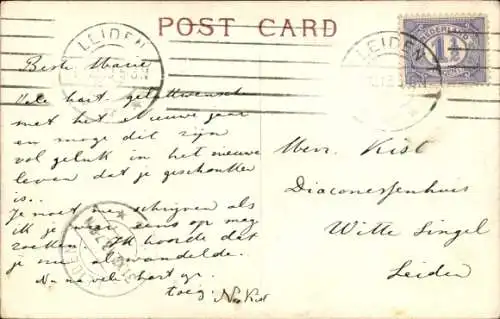 POST CARD
LEIDEN
LEIDEN
NEDERLAND
1½
CENT
Beste Marie
Vele hart. geluk
met het Nieuwe jaar
en moge dit zijn
vol geluk in het nieuwe
leven dat je geschonken
is..
Je moet me schrijven als
ik je weer eens op mag
zoeken. Ik hoorde dat
je nu al wandelde.
Nu na vele hart gr.
toeg: Kist
Kist
Diaconessenhuis
Witte Singel
Leiden